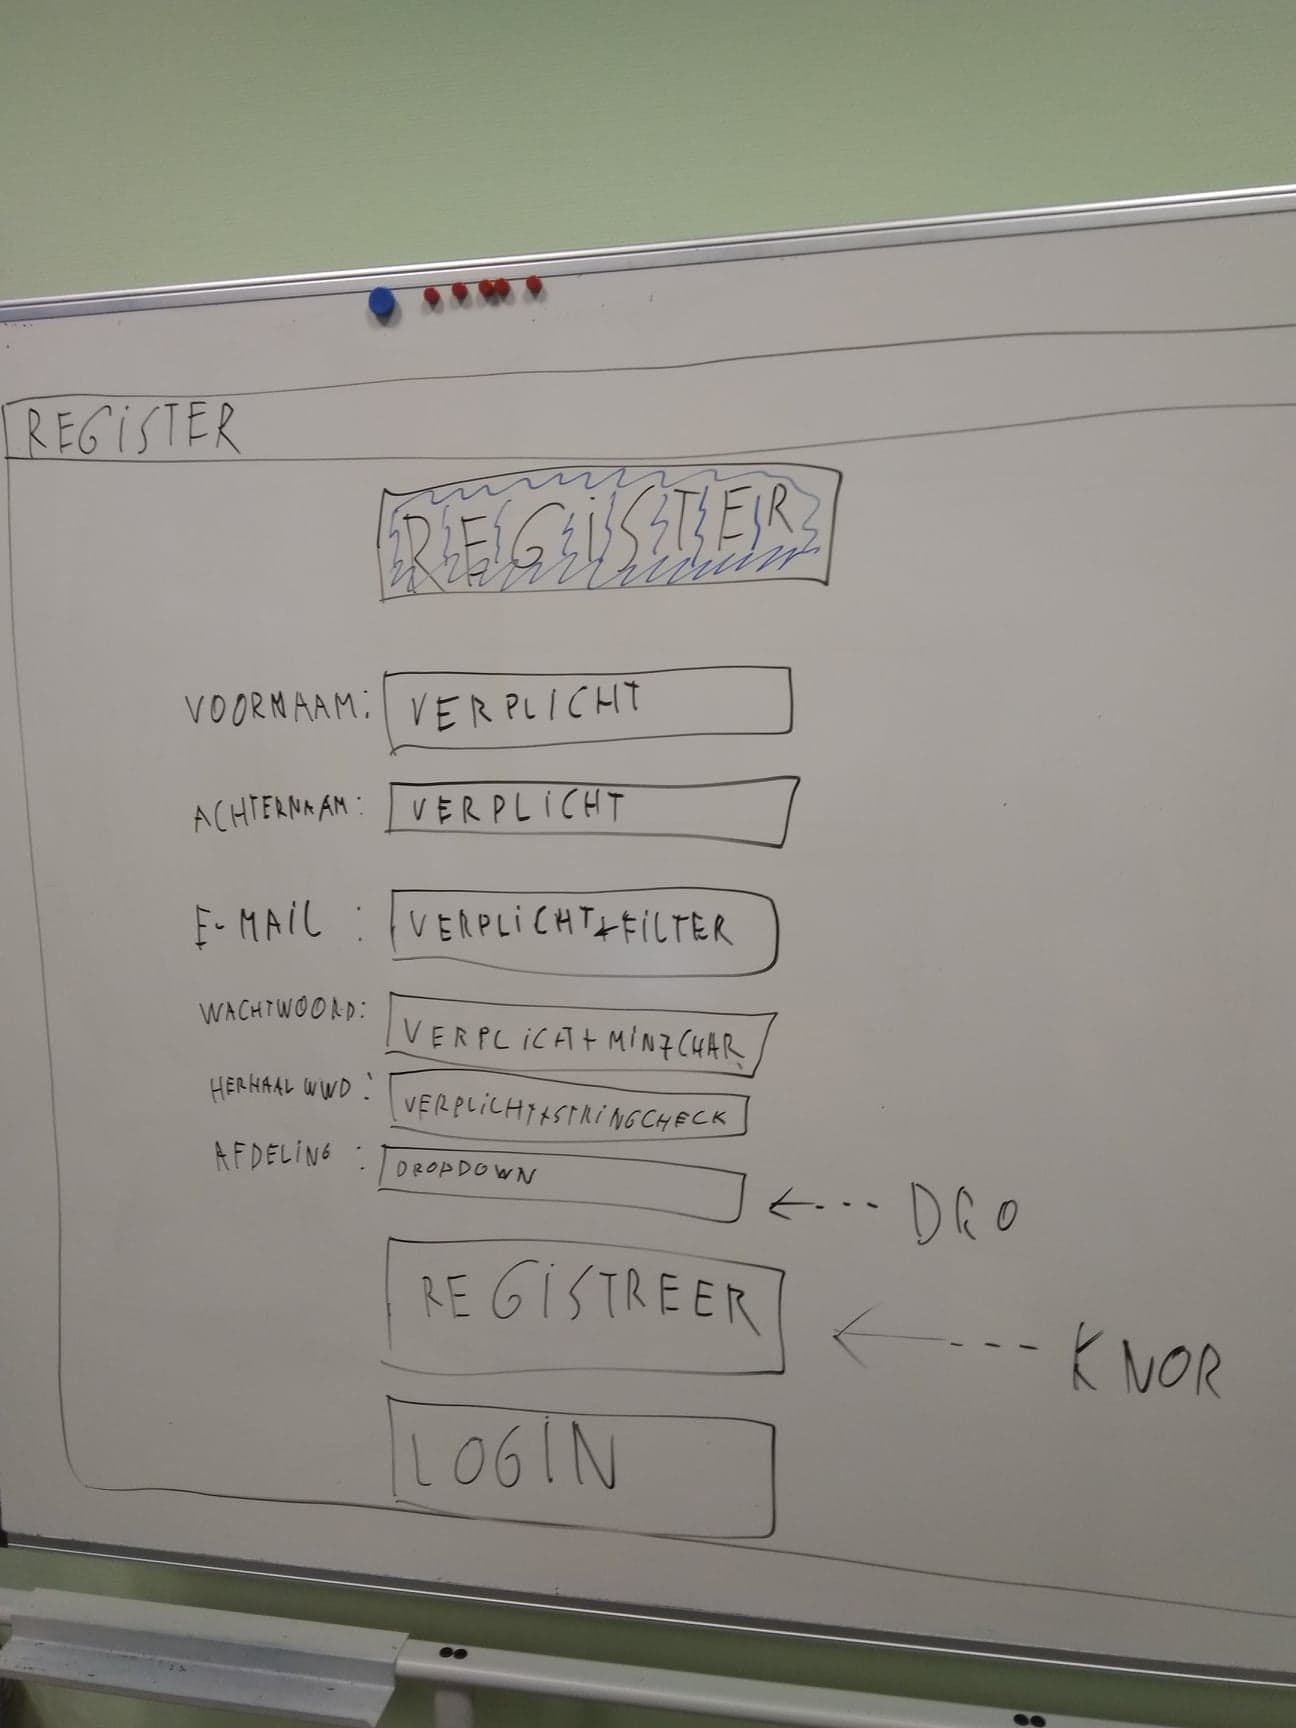 REGISTER
REGISTER
VOORNAAM: VERPLICHT
ACHTERNAAM: VERPLICHT
E-MAIL : VERPLICHT+FILTER
WACHTWOORD: VERPLICHT+MIN7CHAR.
HERHAAL WWD: VERPLICHT+STRINGCHECK
AFDELING : DROPDOWN
DRO
REGISTREER
KNOR
LOGIN